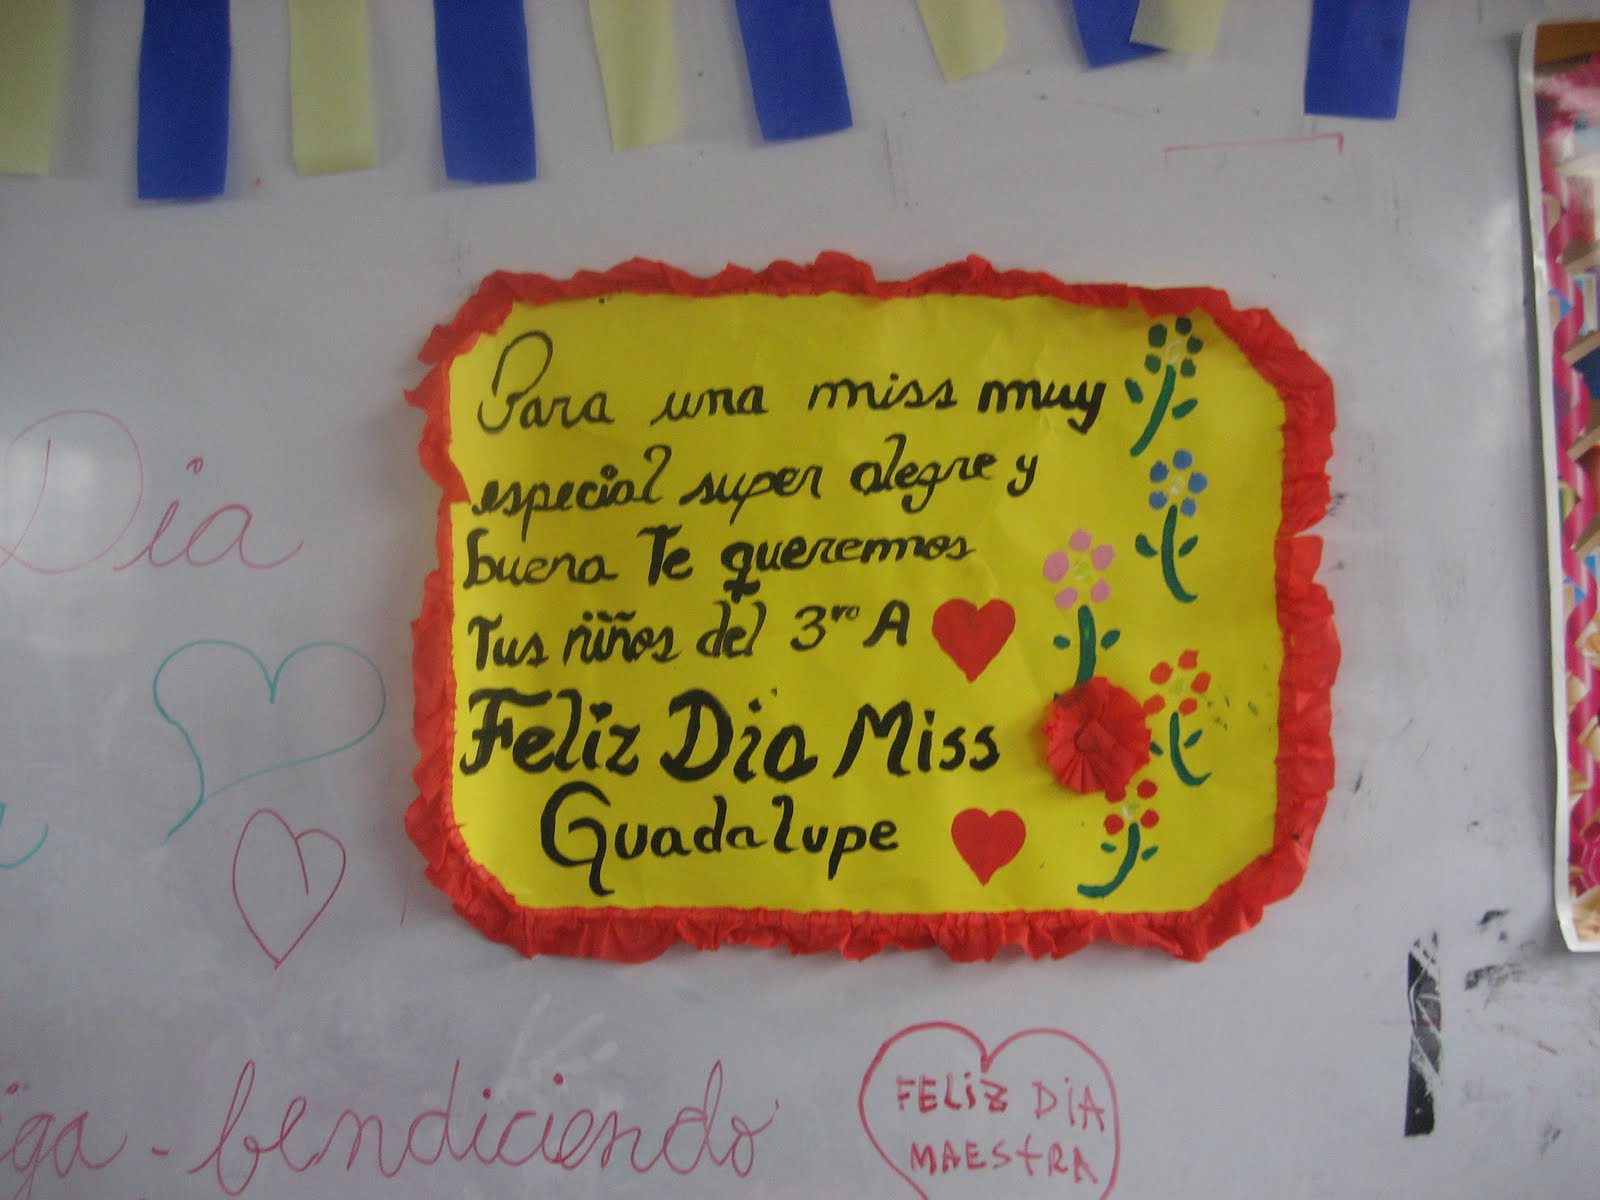 Para una miss muy
especial super alegre y
buena Te queremos
Tus niños del 3ro A
Feliz Dia Miss
Guadalupe
Dia
iga - bendiciendo
FELiZ DiA
MAEStRA